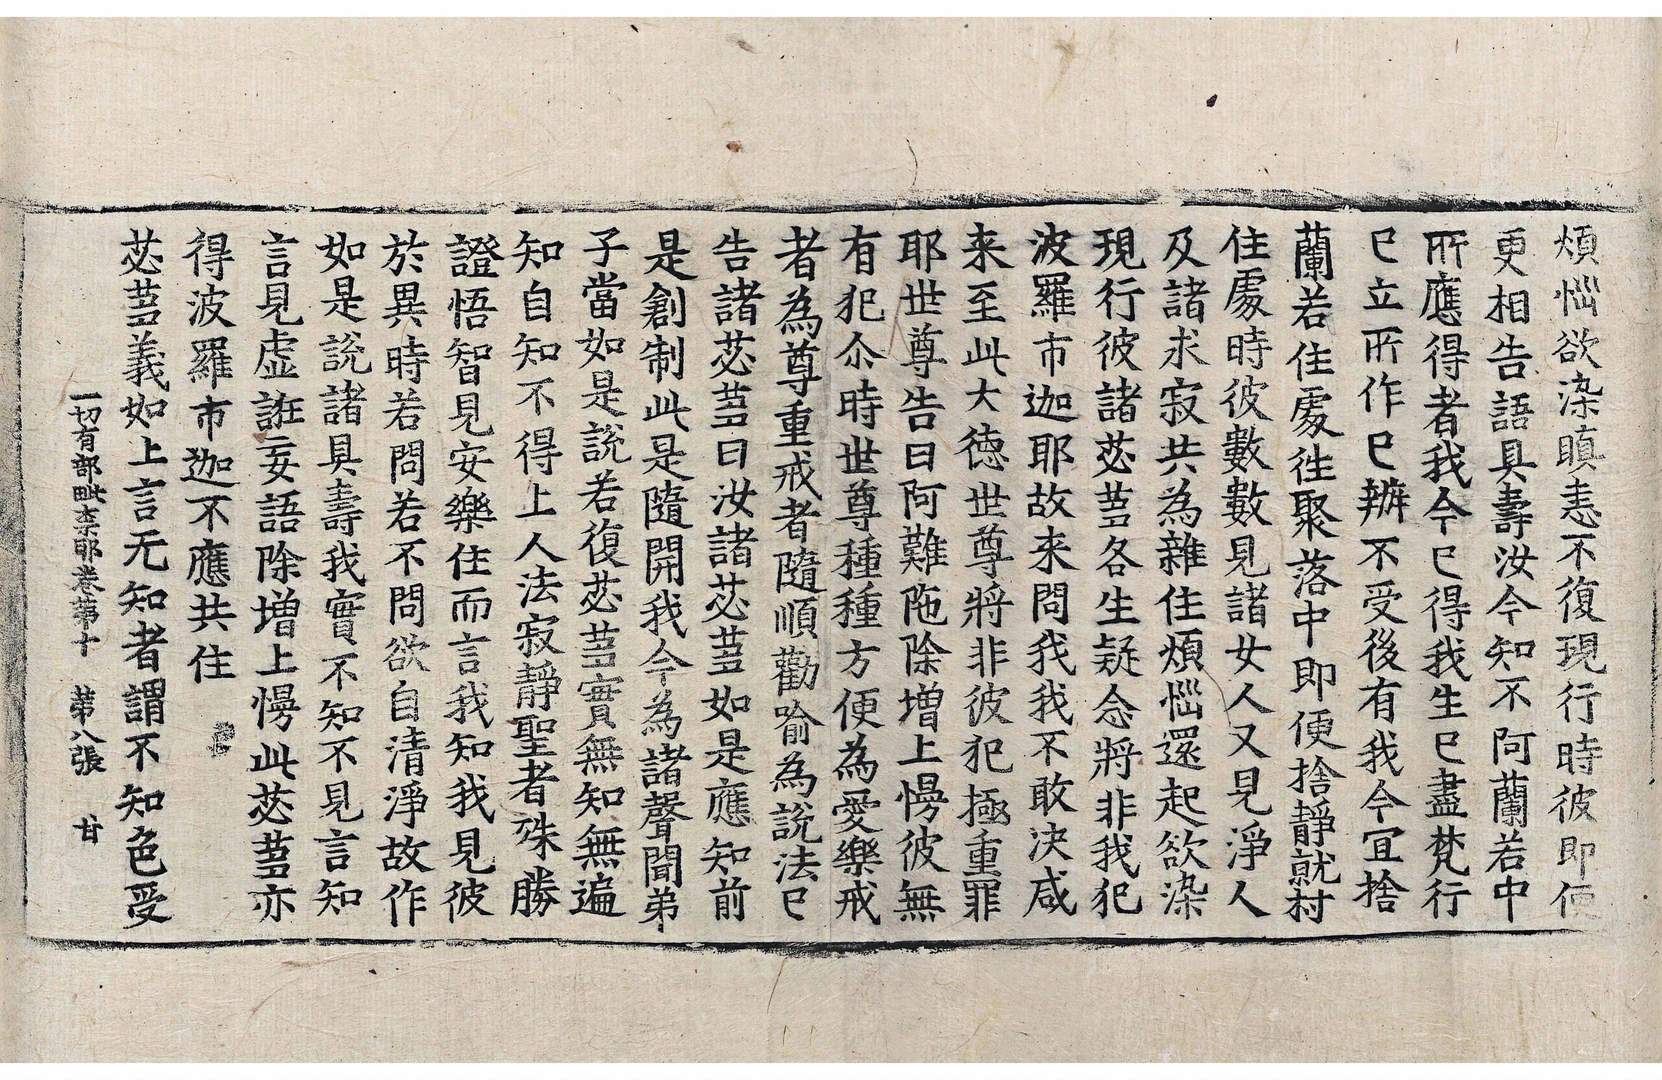 煩惱欲染瞋恚不復現行時彼即便
更相告語具壽汝今知不阿蘭若中
所應得者我今已得我生已盡梵行
已立所作已辦不受後有我今宜捨
蘭若住處往聚落中即便捨靜就村
住處時彼數數見諸女人又見淨人
及諸求寂共為雜住煩惱還起欲染
現行彼諸苾蒭各生疑念將非我犯
波羅市迦耶故来問我我不敢決咸
来至此大德世尊將非彼犯極重罪
耶世尊告曰阿難陁除增上慢彼無
有犯尒時世尊種種方便為愛樂戒
者為尊重戒者隨順勸喻為說法已
告諸苾蒭曰汝諸苾蒭如是應知前
是創制此是隨開我今為諸聲聞弟
子當如是說若復苾蒭實無知無遍
知自知不得上人法寂靜聖者殊勝
證悟智見安樂住而言我知我見彼
於異時若問若不問欲自清淨故作
如是說諸具壽我實不知不見言知
言見虛誑妄語除增上慢此苾蒭亦
得波羅市迦不應共住
苾蒭義如上言无知者謂不知色受
一切有部毗奈耶卷第十　第八張　甘